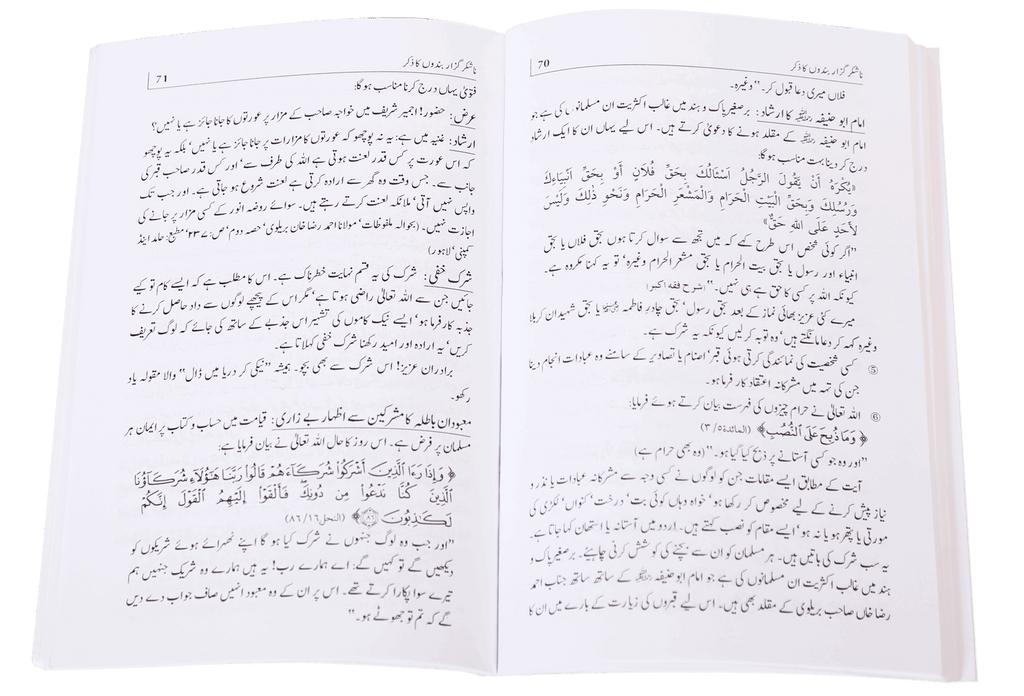 70
ناشکر گزار بندوں کا ذکر
فلاں میری دعا قبول کر۔“ وغیرہ۔
امام ابو حنیفہ رحمۃ اللہ علیہ کا ارشاد: برصغیر پاک و ہند میں غالب اکثریت ان مسلمانوں کی ہے جو
امام ابو حنیفہ رحمۃ اللہ علیہ کے مقلد ہونے کا دعویٰ کرتے ہیں۔ اس لیے یہاں ان کا ایک ارشاد
درج کر دینا بہت مناسب ہو گا:
«يُكْرَهُ أَنْ يَقُولَ الرَّجُلُ اَسْئَالُكَ بِحَقِّ فُلَانٍ أَوْ بِحَقِّ أَنْبِيَاءِكَ
وَرُسُلِكَ وَبِحَقِّ الْبَيْتِ الْحَرَامِ وَالْمَشْعَرِ الْحَرَامِ وَنَحْوِ ذٰلِكَ وَلَيْسَ
لِأَحَدٍ عَلَى اللهِ حَقٌّ»
”اگر کوئی شخص اس طرح کہے کہ میں تجھ سے سوال کرتا ہوں بحق فلاں یا بحق
انبیاء اور رسول یا بحق بیت الحرام یا بحق مشعر الحرام وغیرہ‘ تو یہ کہنا مکروہ ہے۔
کیونکہ اللہ پر کسی کا حق ہے ہی نہیں۔“ (شرح فقہ اکبر)
میرے کئی عزیز بھائی نماز کے بعد بحق رسول‘ بحق چادر فاطمہ یا بحق شہیدان کربلا
وغیرہ کہہ کر دعا مانگتے ہیں‘ وہ توبہ کر لیں کیونکہ یہ شرک ہے۔
⑤ کسی شخصیت کی نمائندگی کرتی ہوئی قبر‘ اصنام یا تصاویر کے سامنے وہ عبادات انجام دینا
جن کی تہہ میں مشرکانہ اعتقاد کار فرما ہو۔
⑥ اللہ تعالیٰ نے حرام چیزوں کی فہرست بیان کرتے ہوئے فرمایا:
﴿ وَمَا ذُبِحَ عَلَى النُّصُبِ ﴾ (المائدة۵/ ۳)
”اور وہ جو کسی آستانے پر ذبح کیا گیا ہو۔“ (وہ بھی حرام ہے)
آیت کے مطابق ایسے مقامات جن کو لوگوں نے کسی وجہ سے مشرکانہ عبادات یا نذر و
نیاز پیش کرنے کے لیے مخصوص کر رکھا ہو‘ خواہ وہاں کوئی بت‘ درخت‘ کنواں‘ لکڑی کی
مورتی یا پتھر ہو یا نہ ہو‘ ایسے مقام کو نصب کہتے ہیں۔ اردو میں آستانہ یا استھان کہا جاتا ہے۔
یہ سب شرک کی باتیں ہیں۔ ہر مسلمان کو ان سے بچنے کی کوشش کرنی چاہیئے۔ برصغیر پاک و
ہند میں غالب اکثریت ان مسلمانوں کی ہے جو امام ابو حنیفہ رحمۃ اللہ علیہ کے ساتھ ساتھ جناب احمد
رضا خاں صاحب بریلوی کے مقلد بھی ہیں۔ اس لیے قبروں کی زیارت کے بارے میں ان کا
71
ناشکر گزار بندوں کا ذکر
فتویٰ یہاں درج کرنا مناسب ہو گا:
عرض: حضور! اجمیر شریف میں خواجہ صاحب کے مزار پر عورتوں کا جانا جائز ہے یا نہیں؟
ارشاد: غنیہ میں ہے: یہ نہ پوچھو کہ عورتوں کا مزارات پر جانا جائز ہے یا نہیں‘ بلکہ یہ پوچھو
کہ اس عورت پر کس قدر لعنت ہوتی ہے اللہ کی طرف سے‘ اور کس قدر صاحب قبر کی
جانب سے۔ جس وقت وہ گھر سے ارادہ کرتی ہے لعنت شروع ہو جاتی ہے۔ اور جب تک
واپس نہیں آتی‘ ملائکہ لعنت کرتے رہتے ہیں۔ سوائے روضہ انور کے کسی مزار پر جانے کی
اجازت نہیں۔ (بحوالہ ملفوظات‘ مولانا احمد رضا خان بریلوی‘ حصہ دوم‘ ص: ۲۳۷‘ مطبع: حامد اینڈ
کمپنی‘ لاہور)
شرک خفی: شرک کی یہ قسم نہایت خطرناک ہے۔ اس کا مطلب ہے کہ ایسے کام تو کیے
جائیں جن سے اللہ تعالیٰ راضی ہوتا ہے‘ مگر اس کے پیچھے لوگوں سے داد حاصل کرنے کا
جذبہ کار فرما ہو‘ ایسے نیک کاموں کی تشہیر اس جذبے کے ساتھ کی جائے کہ لوگ تعریف
کریں‘ یہ ارادہ اور امید رکھنا شرک خفی کہلاتا ہے۔
برادران عزیز! اس شرک سے بھی بچو۔ ہمیشہ ”نیکی کر دریا میں ڈال“ والا مقولہ یاد
رکھو۔
معبودان باطلہ کا مشرکین سے اظہار بے زاری: قیامت میں حساب و کتاب پر ایمان ہر
مسلمان پر فرض ہے۔ اس روز کا حال اللہ تعالیٰ نے بیان فرمایا ہے:
﴿ وَإِذَا رَءَا الَّذِينَ أَشْرَكُوا شُرَكَآءَهُمْ قَالُوا رَبَّنَا هَٰٓؤُلَآءِ شُرَكَآؤُنَا
الَّذِينَ كُنَّا نَدْعُوا مِن دُونِكَ فَأَلْقَوْا إِلَيْهِمُ الْقَوْلَ إِنَّكُمْ
لَكَاذِبُونَ ﴿٨٦﴾ ﴾ (النحل۱۶/ ۸۶)
”اور جب وہ لوگ جنہوں نے شرک کیا ہو گا اپنے ٹھہرائے ہوئے شریکوں کو
دیکھیں گے تو کہیں گے: اے ہمارے رب! یہ ہیں ہمارے وہ شریک جنہیں ہم
تیرے سوا پکارا کرتے تھے۔ اس پر ان کے وہ معبود انہیں صاف جواب دے دیں
گے کہ تم تو جھوٹے ہو۔“